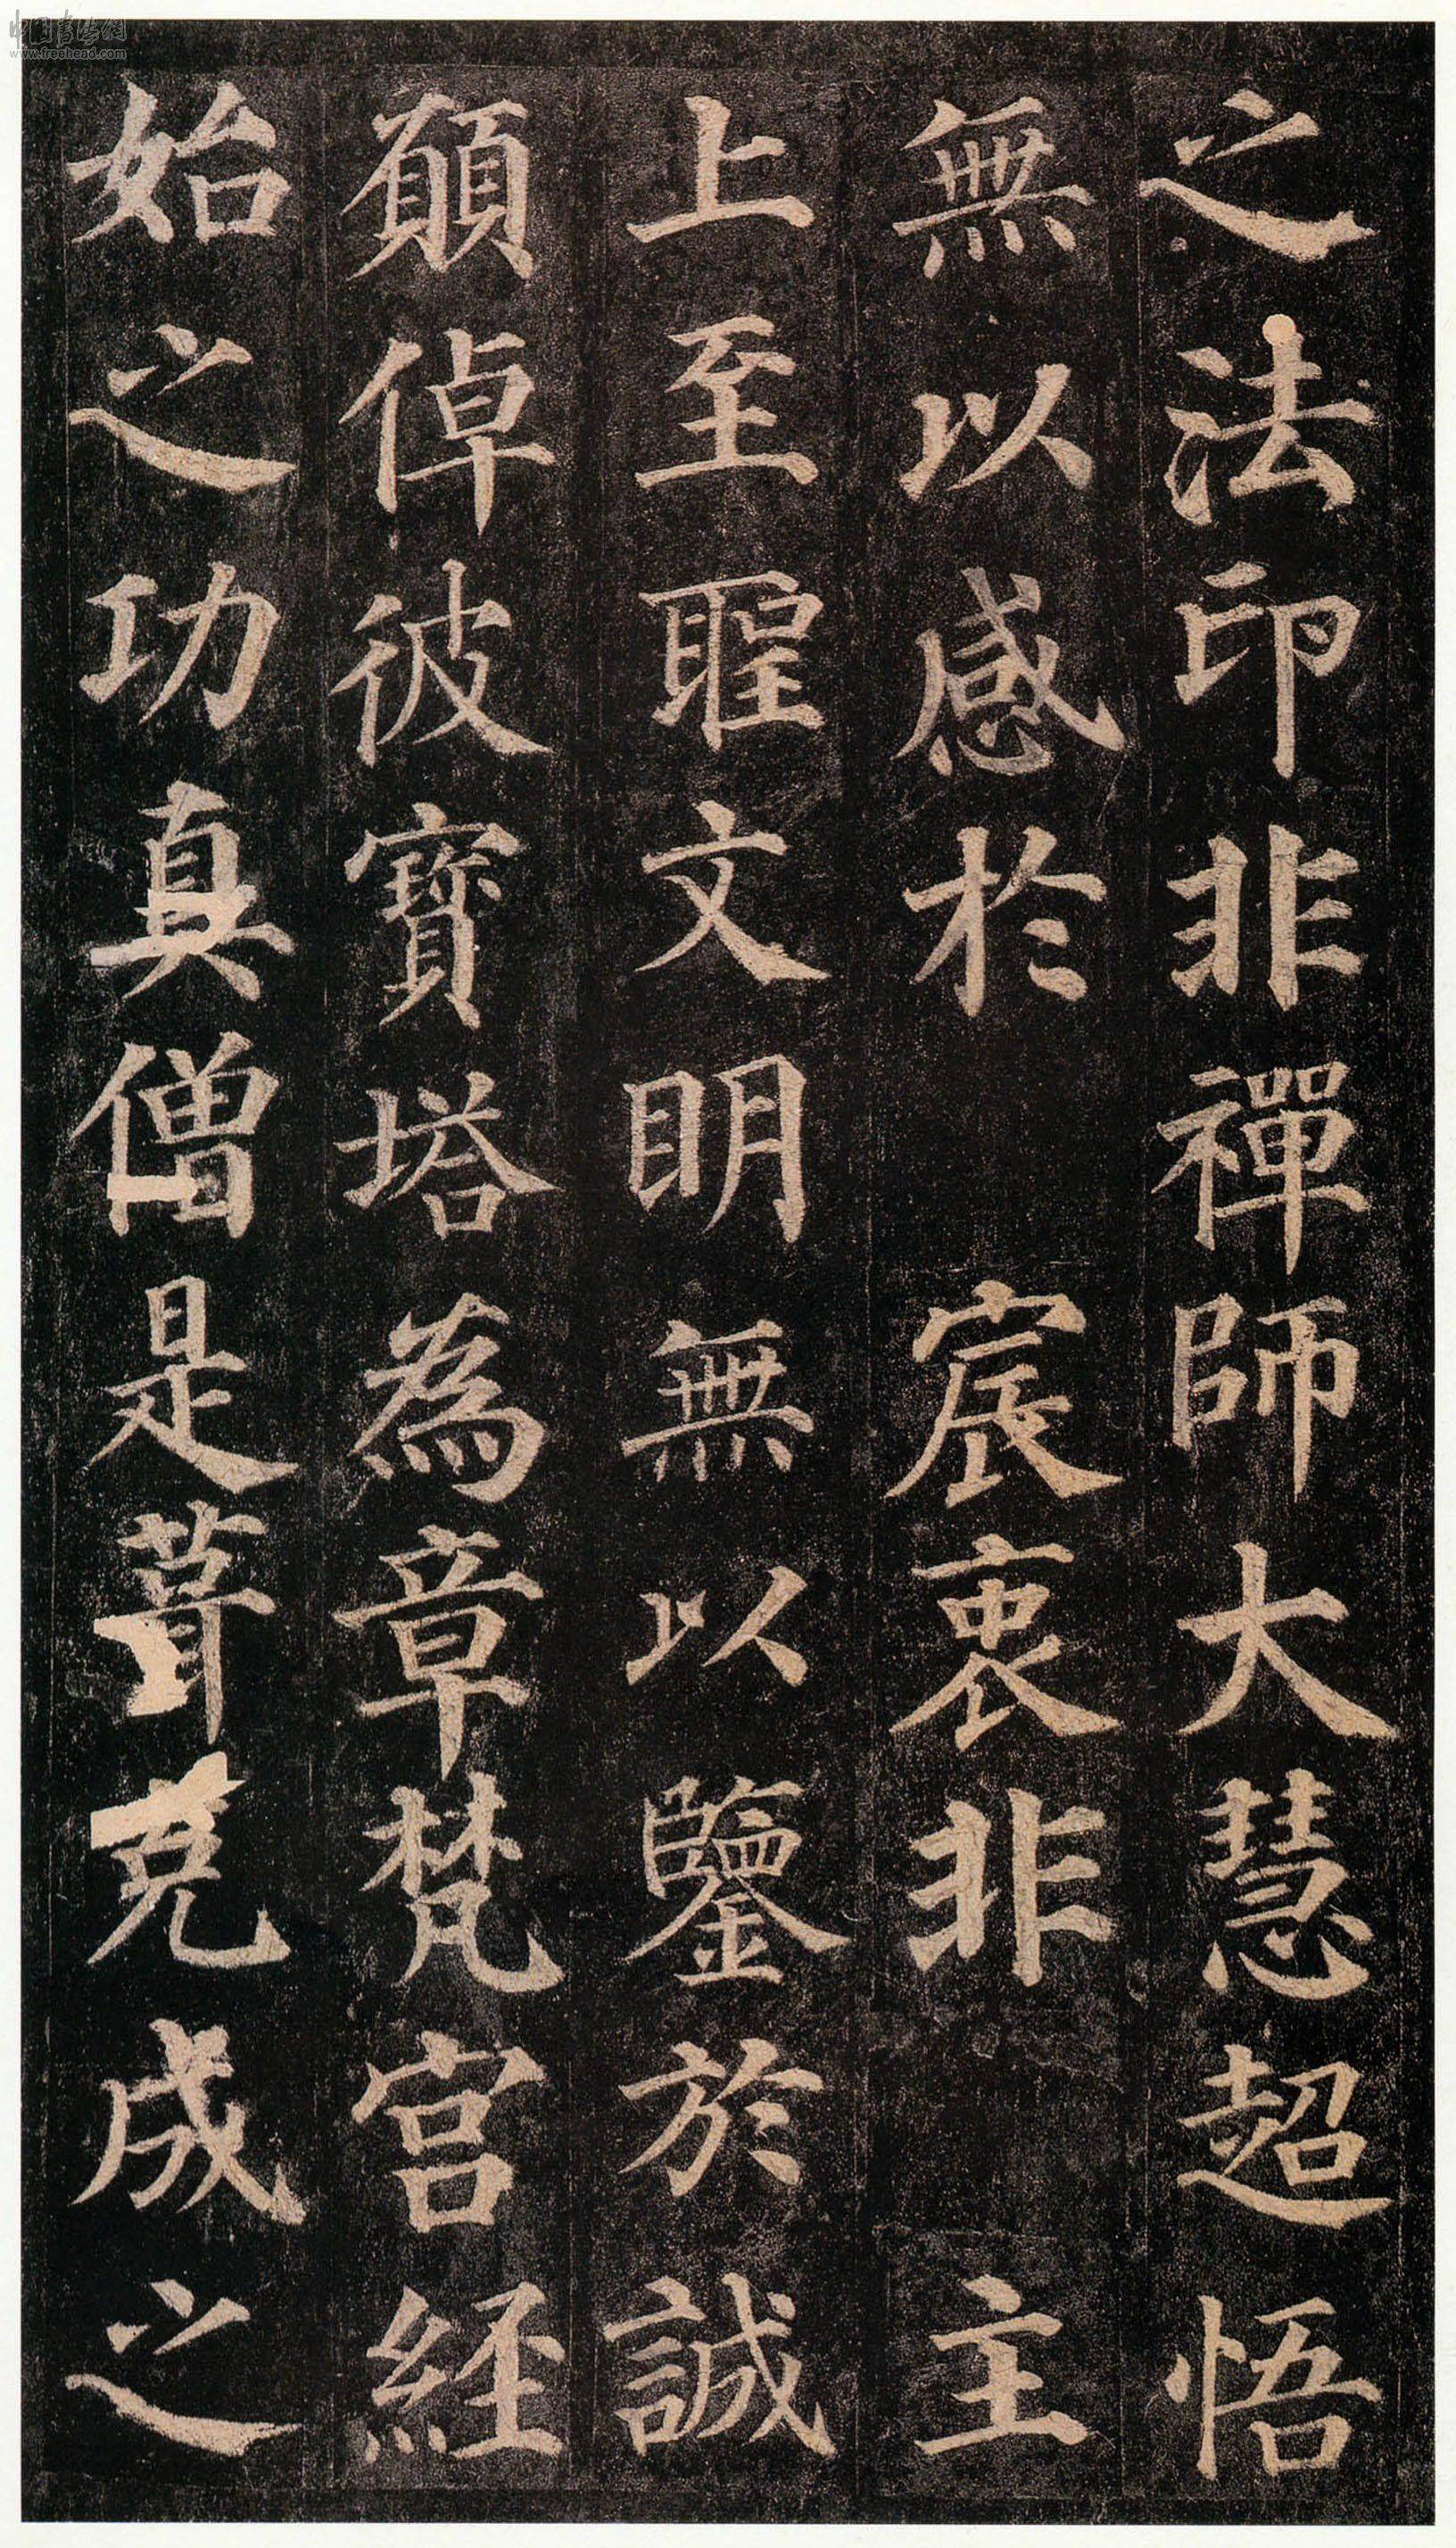 之法印非禪師大慧超悟
無以感於 宸衷非 主
上至聖文明無以鑒於誠
願倬彼寶塔為章梵宮經
始之功真僧是葺克成之
中国书法网
www.freehead.com